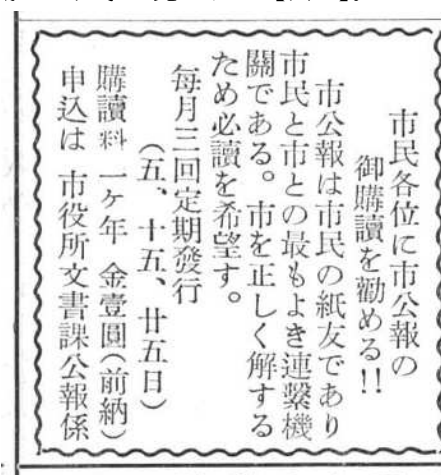 市民各位に市公報の
御購讀を勸める!!
市公報は市民の紙友であり
市民と市との最もよき連繫機
關である。市を正しく解する
ため必讀を希望す。
每月三回定期發行
（五、十五、廿五日）
購讀料 一ヶ年 金壹圓（前納）
申込は 市役所文書課公報係